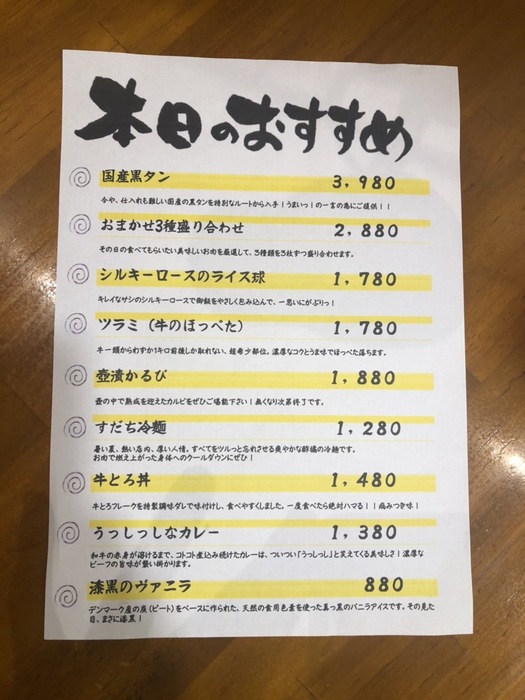 本日のおすすめ
国産黒タン 3,980
今や、仕入れも難しい国産の黒タンを特別なルートから入手！うまいっ！の一言の為にご提供！！
おまかせ3種盛り合わせ 2,880
その日の食べてもらいたい美味しいお肉を厳選して、3種類を3枚ずつ盛り合わせます。
シルキーロースのライス球 1,780
キレイなサシのシルキーロースで御飯をやさしく包み込んで、一思いにがぶりっ！
ツラミ（牛のほっぺた） 1,780
牛一頭からわずか1キロ前後しか取れない、超希少部位。濃厚なコクとうま味でほっぺた落ちます。
壺漬かるび 1,880
壺の中で熟成を迎えたカルビをぜひご堪能下さい！無くなり次第終了です。
すだち冷麺 1,280
暑い夏、熱い店内、厚い人情。すべてをツルっと忘れさせる爽やかな酢橘の冷麺です。
お肉で燃え上がった身体へのクールダウンにぜひ！
牛とろ丼 1,480
牛とろフレークを特製調味ダレで味付けし、食べやすくしました。一度食べたら絶対ハマる！！病みつき味！
うっしっしなカレー 1,380
和牛の赤身が溶けるまで、コトコト煮込み続けたカレーは、ついつい「うっしっし」と笑えてくる美味しさ！濃厚な
ビーフの旨味が襲い掛かります。
漆黒のヴァニラ 880
デンマーク産の炭（ピート）をベースに作られた、天然の食用色素を使った真っ黒のバニラアイスです。その見た
目、まさに漆黒！